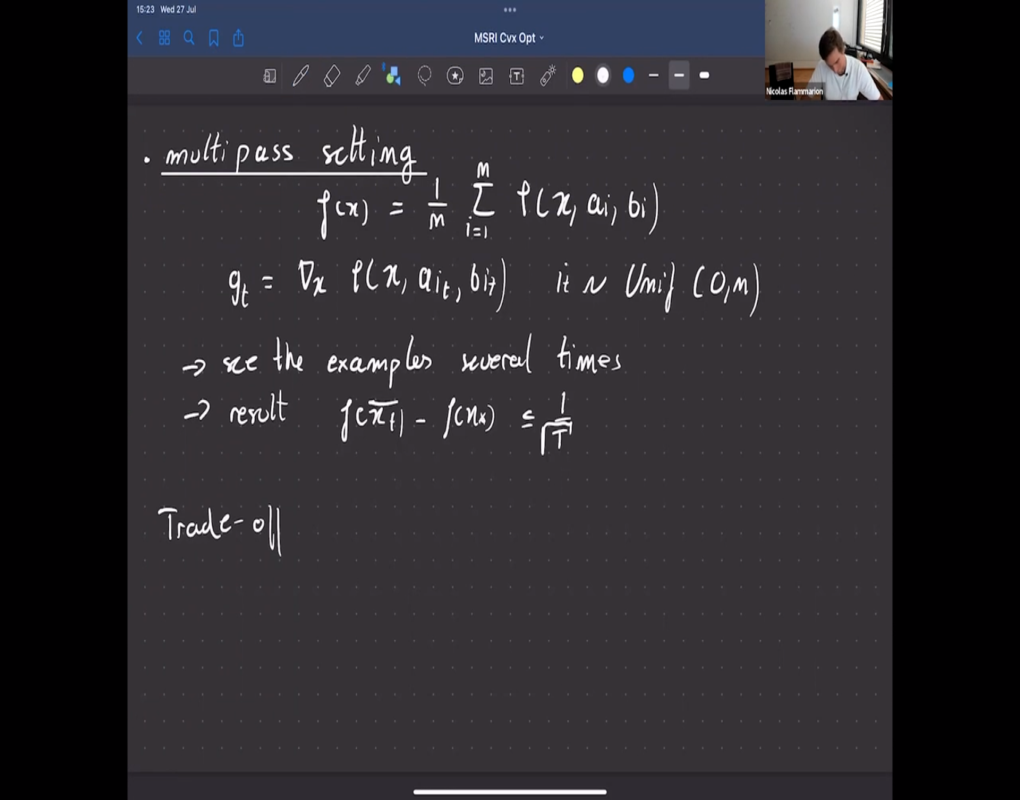 15:23 Wed 27 Jul
MSRI Cvx Opt
Nicolas Flammarion
• multipass setting
f(x) = 1/n Σ_{i=1}^{n} ℓ(x, a_i, b_i)
g_t = ∇_x ℓ(x, a_{i_t}, b_{i_t}) i_t ~ Unif (0,n)
→ see the examples several times
→ result f(x̄_t) - f(x_*) ≤ 1/√T
Trade-off